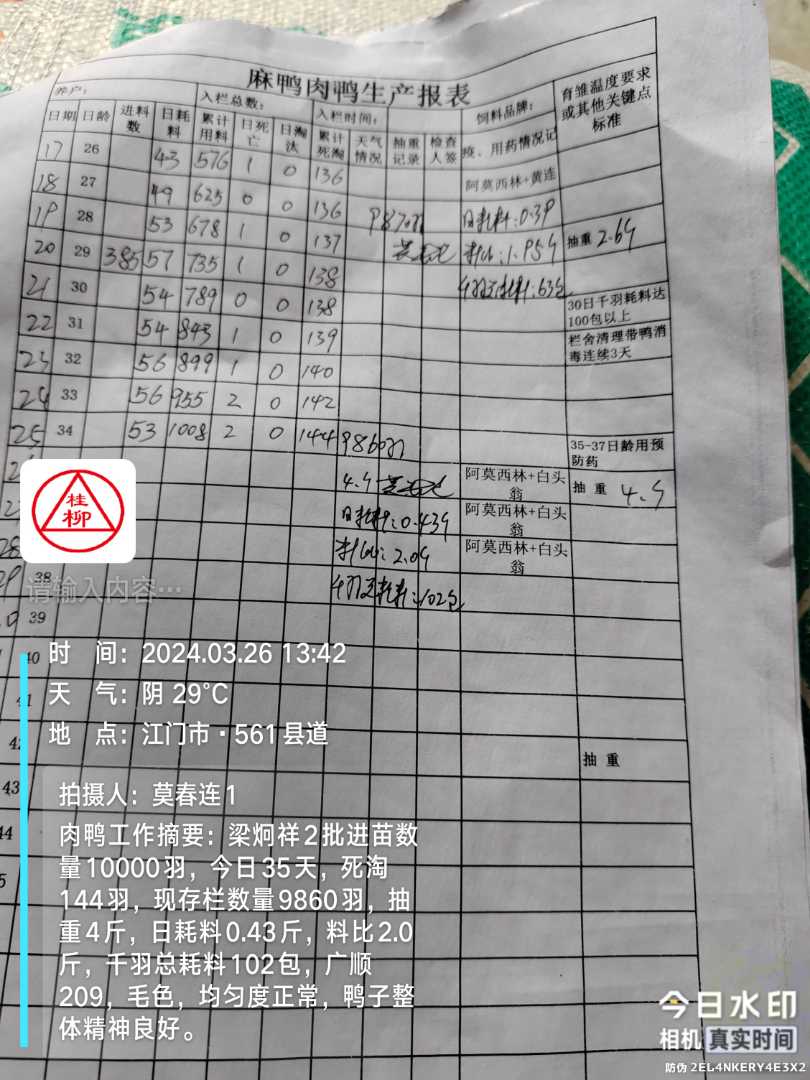 麻鸭肉鸭生产报表
养户: 入栏总数: 入栏时间: 饲料品牌: 育雏温度要求或其他关键点标准
日期 日龄 进料数 日耗料 累计用料 日死亡 日淘汰 累计死淘 天气情况 抽重记录 检查人签 疫、用药情况记
17 26 43 576 1 0 136 阿莫西林+黄连
18 27 49 625 0 0 136 日耗料:0.39
19 28 53 678 1 0 137 抽重 2.6斤
20 29 385 57 735 1 0 138 料比:1.95斤
21 30 54 789 0 0 138 千羽总耗料:63包 30日千羽耗料达100包以上
22 31 54 843 1 0 139 栏舍清理带鸭消毒连续3天
23 32 56 899 1 0 140
24 33 56 955 2 0 142
25 34 53 1008 2 0 144 9860羽 35-37日龄用预防药
4.斤 阿莫西林+白头翁 抽 重 4.斤
日耗料:0.43斤 阿莫西林+白头翁
28 料比:2.0斤 阿莫西林+白头翁
38 千羽总耗料:102包
39
40
41
42 抽 重
43
44
桂柳
请输入内容…
时 间:2024.03.26 13:42
天 气:阴 29℃
地 点:江门市·561县道
拍摄人:莫春连1
肉鸭工作摘要:梁炯祥2批进苗数
量10000羽,今日35天,死淘
144羽,现存栏数量9860羽,抽
重4斤,日耗料0.43斤,料比2.0
斤,千羽总耗料102包,广顺
209,毛色,均匀度正常,鸭子整
体精神良好。
今日水印
相机 真实时间
防伪 2EL4NKERY4E3X2